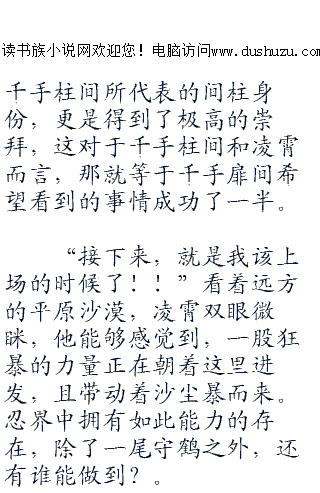 读书族小说网欢迎您！电脑访问www.dushuzu.com
千手柱间所代表的间柱身
份，更是得到了极高的崇
拜，这对于千手柱间和凌霄
而言，那就等于千手扉间希
望看到的事情成功了一半。
“接下来，就是我该上
场的时候了！！”看着远方
的平原沙漠，凌霄双眼微
眯，他能够感觉到，一股狂
暴的力量正在朝着这里进
发，且带动着沙尘暴而来。
忍界中拥有如此能力的存
在，除了一尾守鹤之外，还
有谁能做到？。